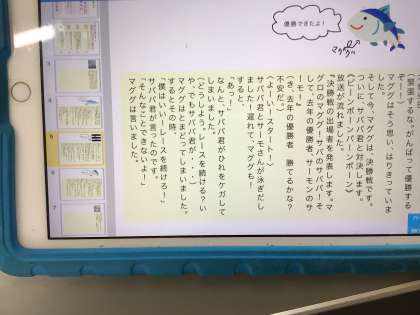 優勝できたよ！
マググ
(緊張するな。がんばって優勝する
ぞー！)
マググはそう思い、はりきっていま
した。
そして今、マググは、決勝戦です。
ついに、サババ君と対決します。
《ピーンポーンパンポーン》
放送が流れました。
『決勝戦の出場者を発表します。マ
グロのマググ、サバのサババ！そ
して、去年の優勝者、サーモンのサ
ーモ！』
(き、去年の優勝者 勝てるかな？
不安だ。)
《よーい、スタート！》
サババ君とサーモさんが泳ぎだし
ました！遅れて、マググも！
すると、
「あっ！」
なんと、サババ君がひれをケガして
しまいました。
(どうしよう。レースを続ける？い
や、でもサババ君が・・・)
マググはとまどってしまいました。
するとその時、
「僕はいい！レースを続けろ！」
サババ君が言ったのです。
「そんなことできないよ！」
マググは言いました。
3
4
5
6
7